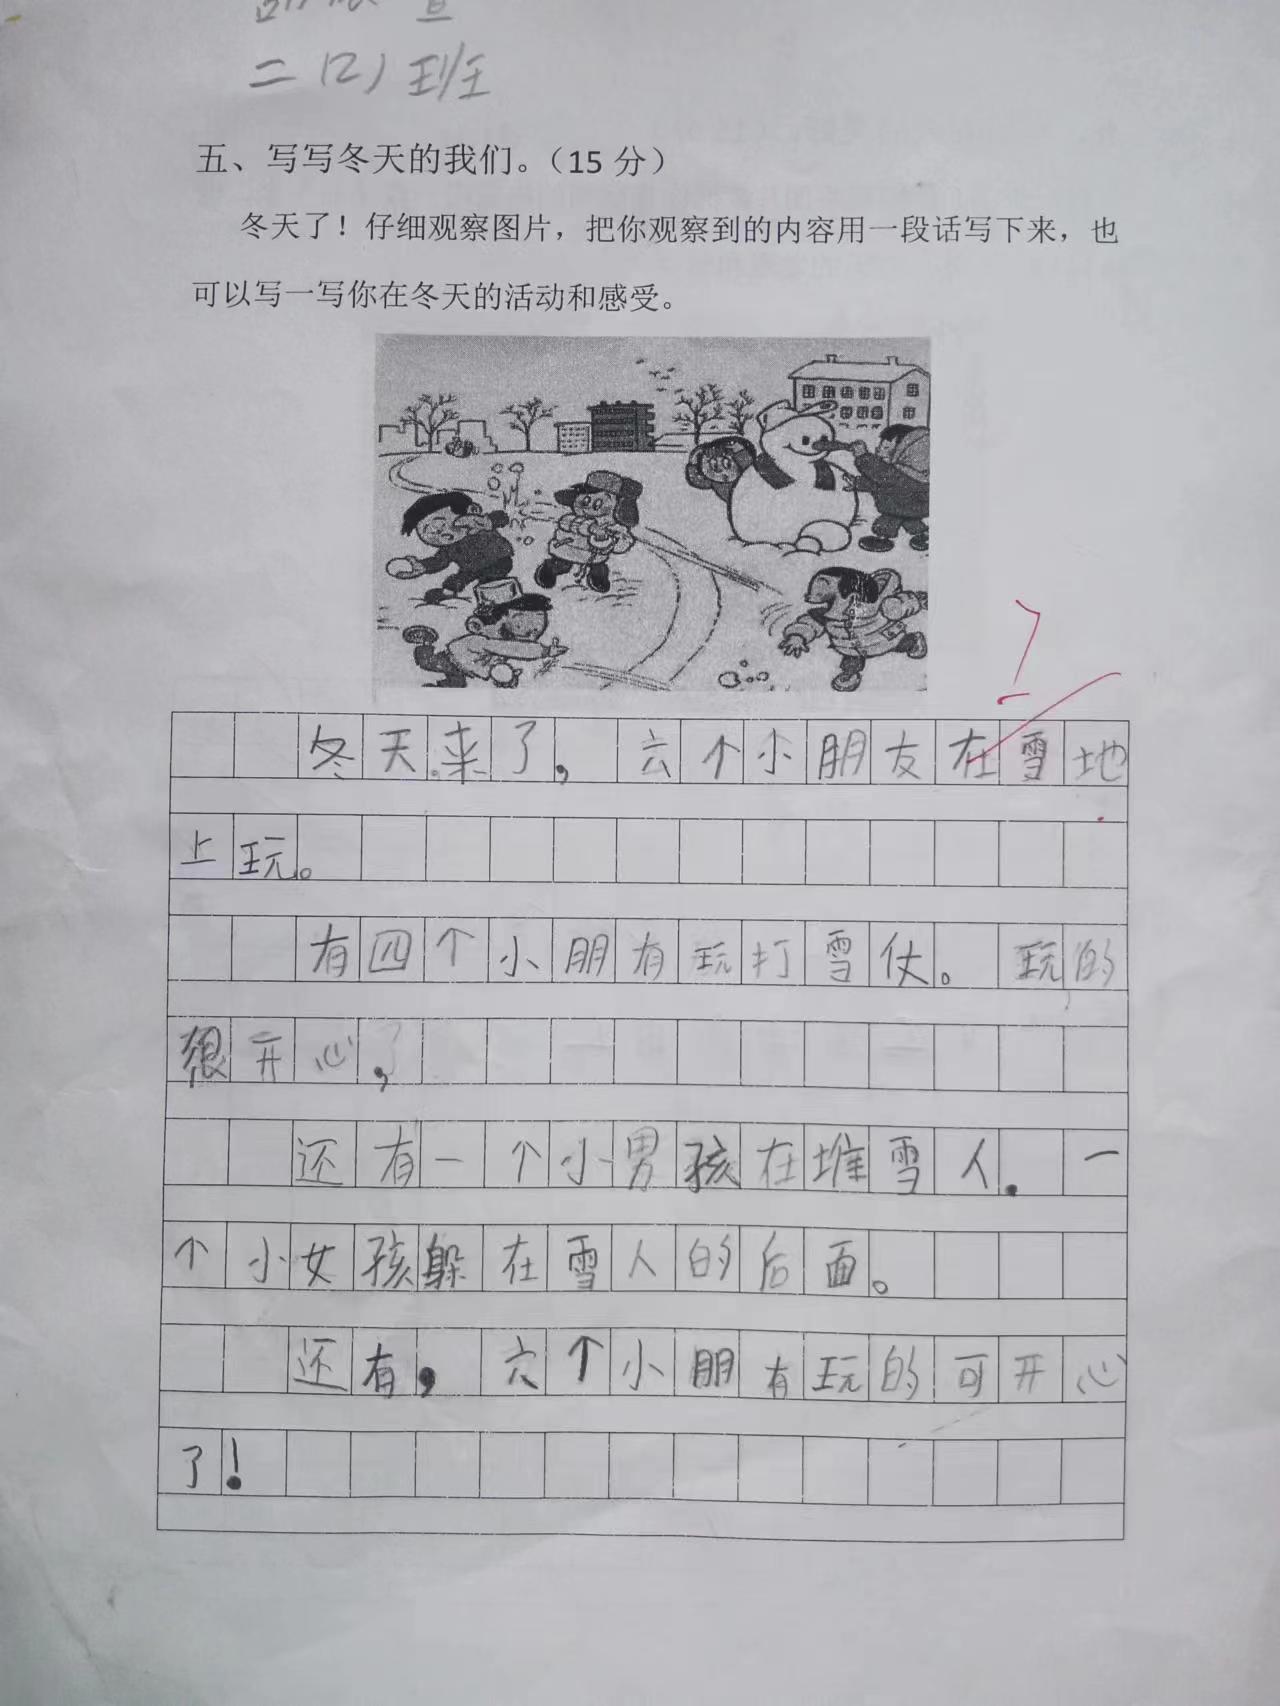 二(2)班
五、写写冬天的我们。（15 分）
冬天了！仔细观察图片，把你观察到的内容用一段话写下来，也
可以写一写你在冬天的活动和感受。
冬天来了，六个小朋友在雪地
上玩。
有四个小朋有玩打雪仗。玩的
很开心，了
还有一个小男孩在堆雪人．一
个小女孩躲在雪人的后面。
还有，六个小朋有玩的可开心
了！